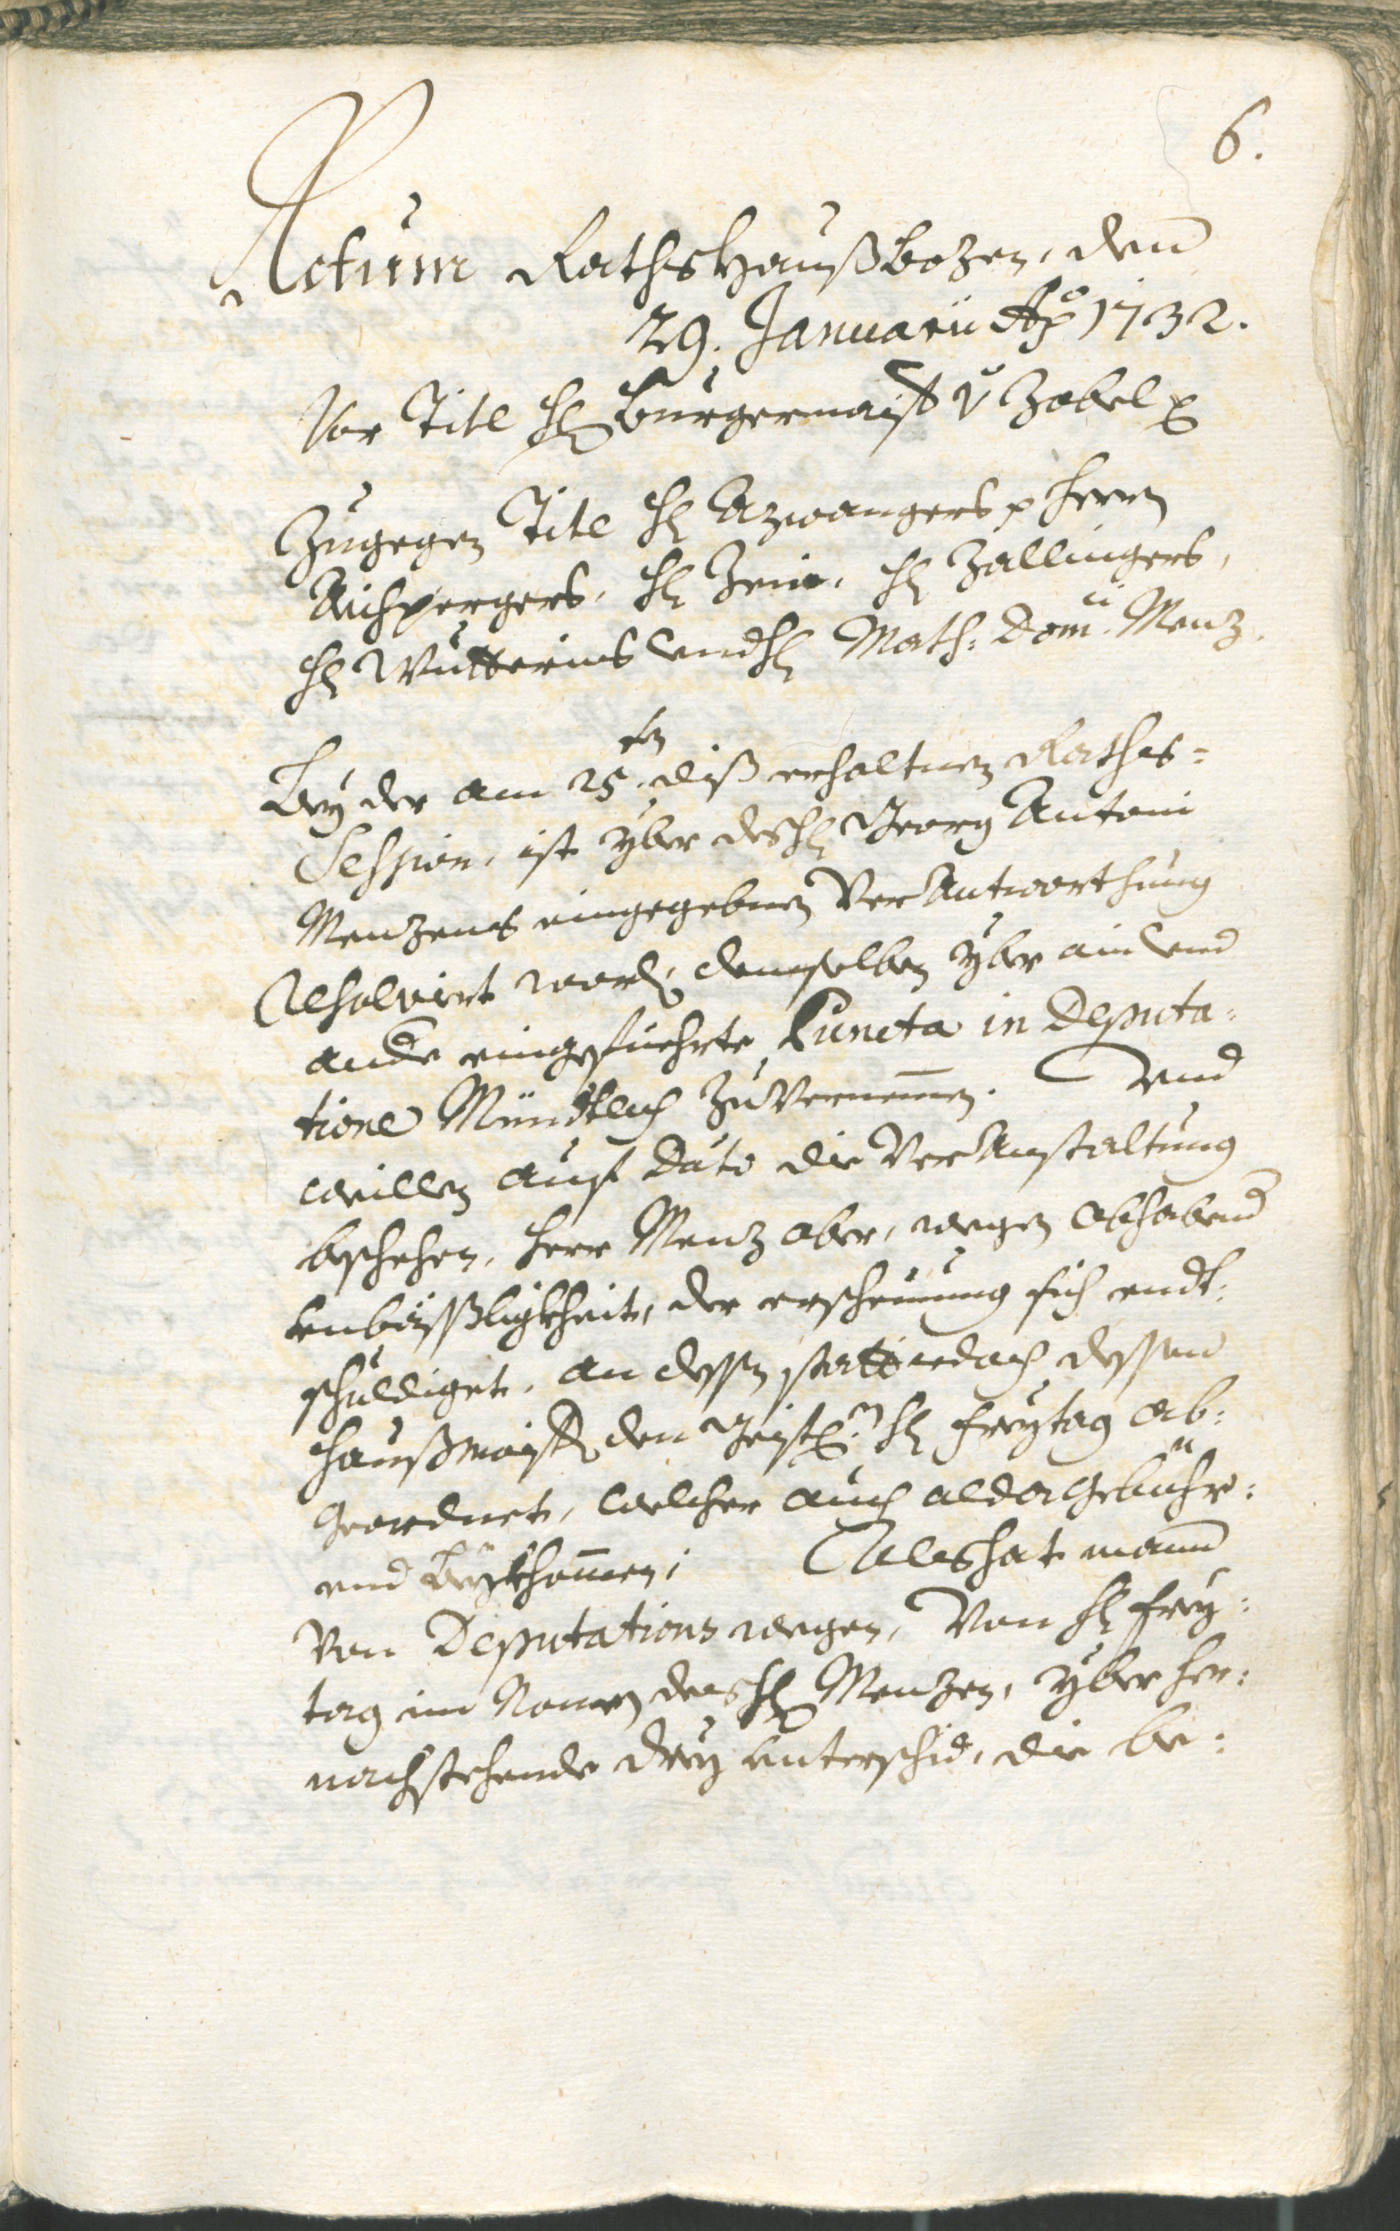 6.
Actum Rathshauß Bozen, den
29. Januarii Aõ 1732.
Vor Titl H. Burgermaist. v. Zobel p.
Zugegen Titl H. Azwangers p. Herrn
Aichpergers, H. Zeie, H. Zallingers,
H. Wutterins vnd H. Math: Dom: Menz.
Bey der am 25.ten diß erhaltnen Raths=
Session, ist yber des H. Georg Antoni
Menzens eingegebnen Verantworthung
Resolvirt word. demselben yber ain vnd
andere eingefüehrte Puncta in Deputa=
tione Mündtlich zuvernemen. Vnd
weillen auf Dato die Veranstaltung
beschehen, Herr Menz aber, wegen obhabend
vnbäßligkheit, der erscheinung sich endt=
schuldiget, an dessen statt iedoch dessen
Haußmaist. den H. Freytag ab=
geordnet, welcher auch alda gebühr=
end beykhomen; Als hat mann
von Deputations wegen, von H. Frey=
tag im Namen des H. Menzen, yber her=
nachstehende drey Unterschid, die be=